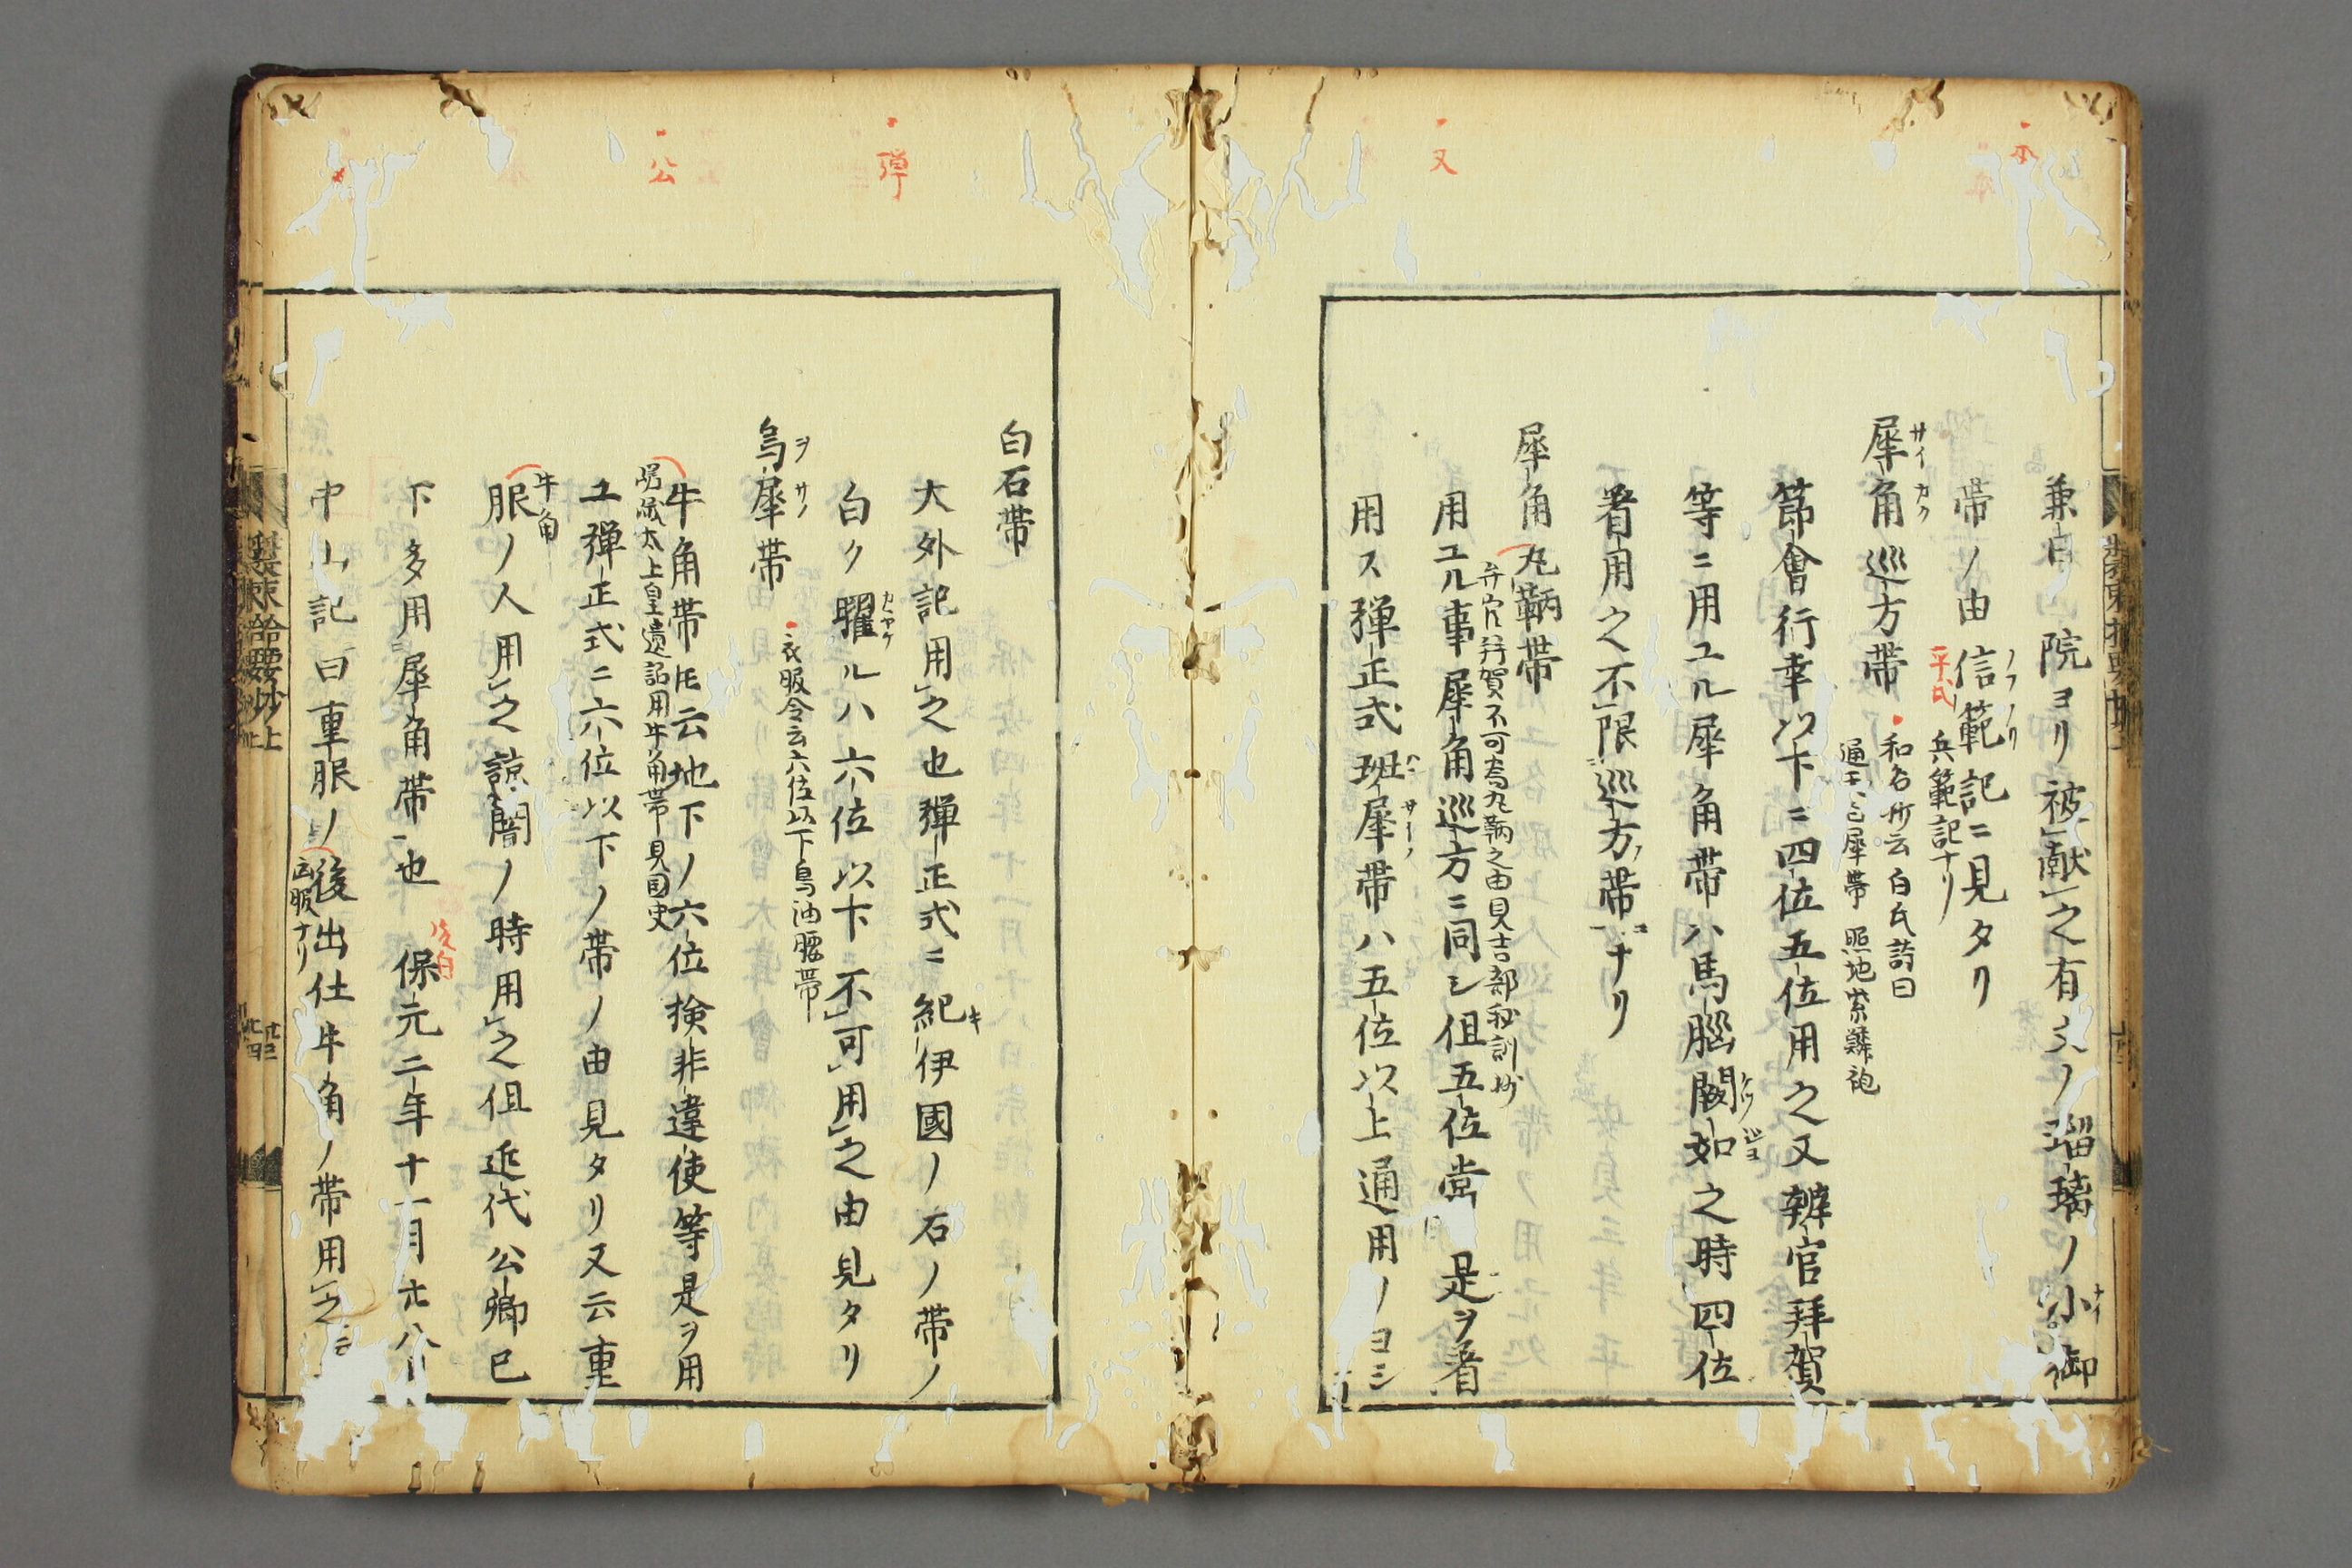 本
兼自 院ヨリ被献之有文ノ瑠璃ノ小御
帯ノ由信範記ニ見タリ
ノフノリ
平氏
兵範記ナリ
犀角巡方帯
サイカク
和名抄云白氏詩曰
通天 犀帯 照地紫麟袍
節會行幸以下ニ四位五位用之又辨官拜賀
等ニ用ユル犀角帯ハ馬脳闕如之時四位
ケツ ジヨ
着用之不限巡方ノ帯ナリ
犀角丸鞆帯
弁官拜賀不可為丸鞆之由見吉部秘訓抄
又
用ユル事犀角巡方ニ同シ但五位常 是ヲ着
用ス彈正式斑犀帯ハ五位以上通用ノヨシ
ハン サイノ
白石帯
大外記用之也彈正式ニ紀伊國ノ石ノ帯ノ
キ
彈
白ク耀ルハ六位以下不可用之由見タリ
カヽヤケ
烏犀帯
ヲ サノ
衣服令云六位以下烏油腰帯
牛角帯トモ云地下ノ六位檢非違使等是ヲ用
太上皇遺詔用牛角帯見国史
公
ユ彈正式ニ六位以下ノ帯ノ由見タリ又云重
服ノ人用之諒闇ノ時用之但近代公卿已
牛角
下多用犀角帯也 保元二年十一月廿八
中山記曰重服ノ後出仕牛角ノ帯用之
服ナリ
装束拾要抄 上